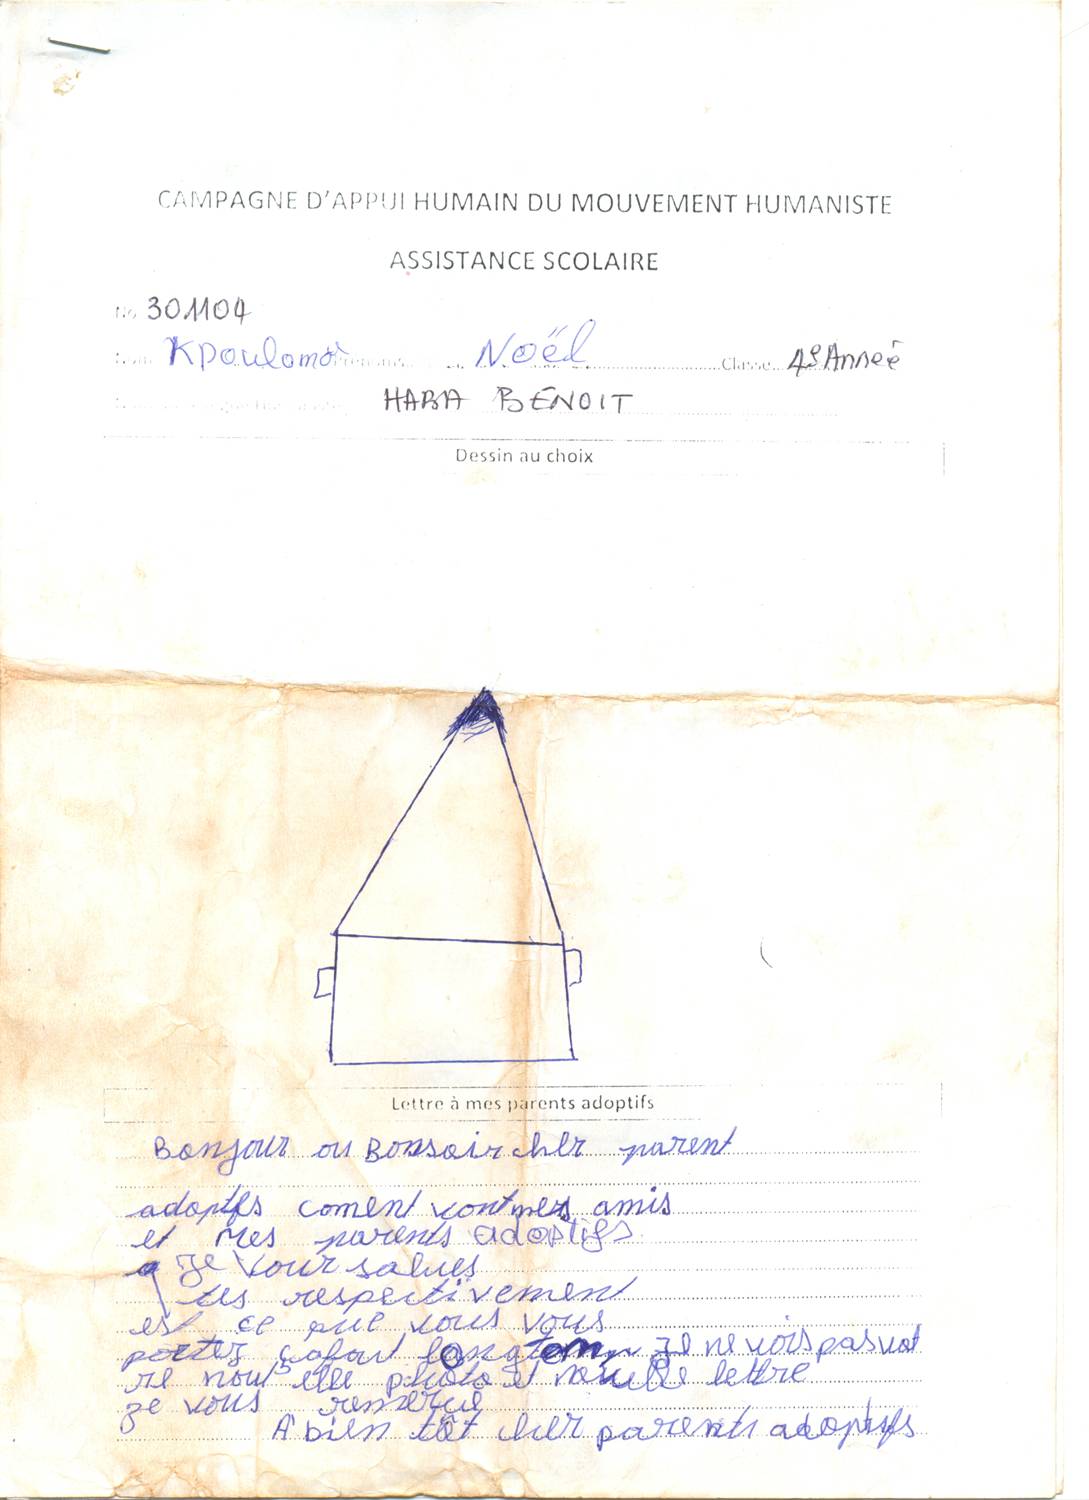 CAMPAGNE D'APPUI HUMAIN DU MOUVEMENT HUMANISTE
ASSISTANCE SCOLAIRE
No 301104
Nom Kpoulomou Prénoms Noël Classe 4e Anneé
HABA BENOIT
Dessin au choix
Lettre à mes parents adoptifs
Bonjour ou Bonsoir cher parent
adoptifs coment vont mes amis
et mes parents adoptifs
Je vour salues
tes respectivement
est ce que vous vous
portez safait longtemp je ne vois pas vot
re nouvelle photo et nouvelle lettre
je vous remercie
A bien tôt cher parents adoptifs